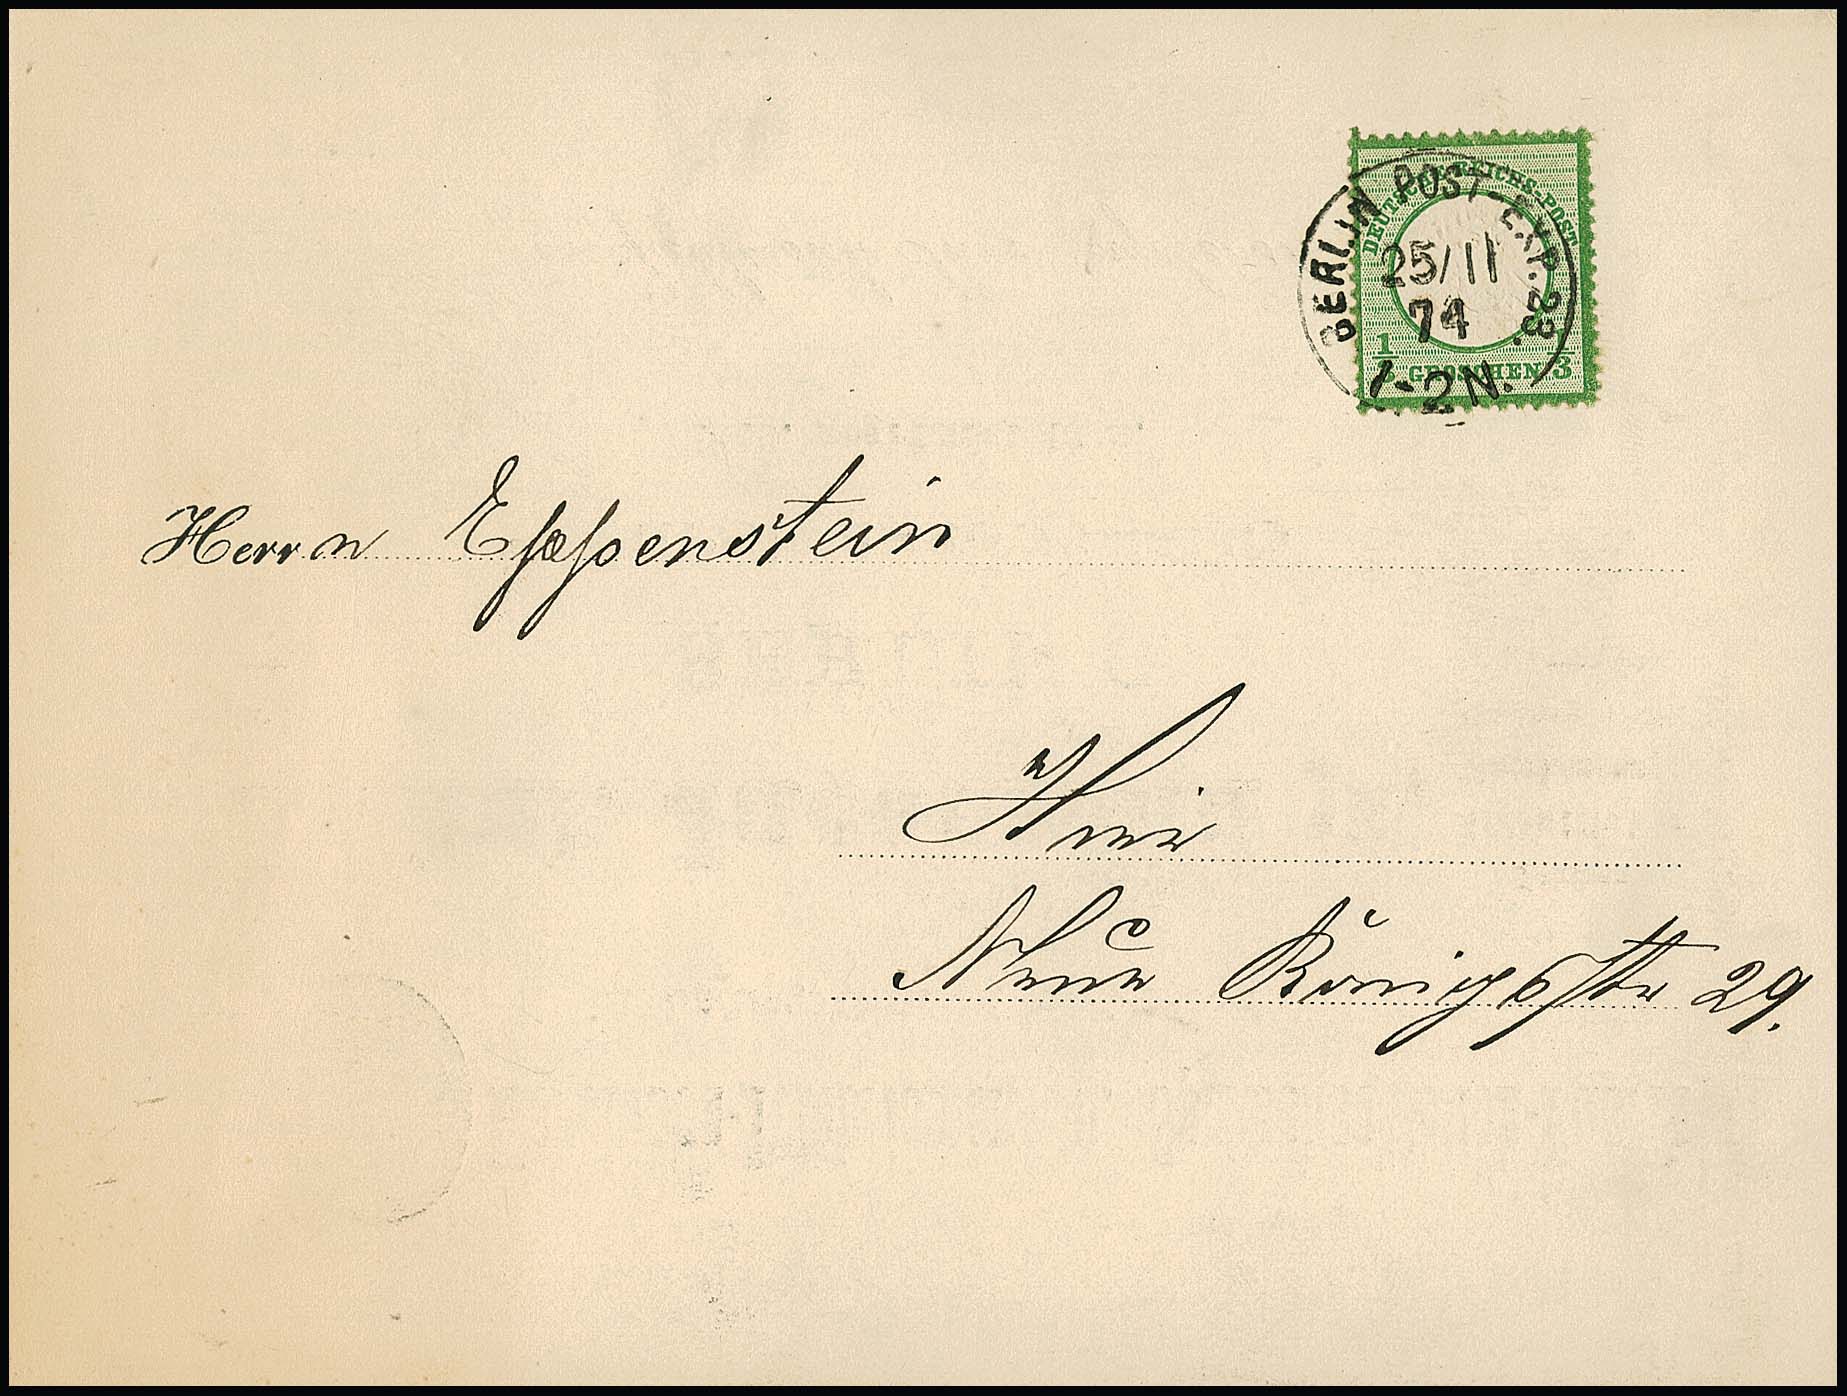 DEUTSCHE REICHS-POST
BERLIN POST-EXP. 23.
25/11
74
1-2N.
1/3 GROSCHEN 1/3
Herrn Eppenstein
Hier
Neue Königsstr 29.